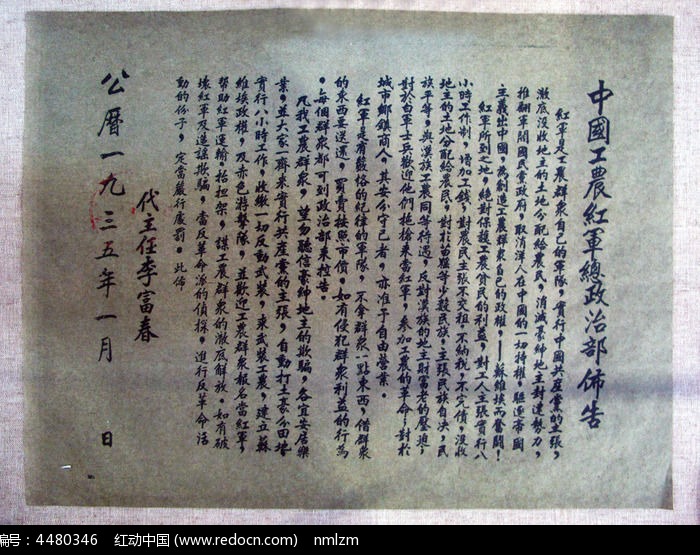 中國工農紅軍總政治部佈告
紅軍是工農群衆自己的軍隊，實行中國共産黨的主張，
澈底沒收地主的土地分配給農民，消滅豪紳地主封建勢力，
推翻軍閥國民黨政府，取消洋人在中國的一切特權，驅逐帝國
主義出中國，為創造工農群衆自己的政權——蘇維埃而奮鬪！
紅軍所到之地，絕對保護工農貧民的利益，對工人主張實行八
小時工作制，增加工錢，對農民主張不交租，不納稅，不完債，沒收
地主的土地分配給農民，對於苗瑤等少數民族，主張民族自决，民
族平等，與漢族工農同等待遇，反對漢族的地主財富老的壓迫，
對於白軍士兵歡迎他們拖槍來當紅軍，參加工農的革命，對於
城市鄉鎮商人，其安分守己者，亦准予自由營業。
紅軍是有嚴格的紀律的軍隊，不拿群衆一點東西，借群衆
的東西要送還，買賣按照市價。如有侵犯群衆利益的行為
，每個群衆都可到政治部來控告。
凡我工農群衆，望勿聽信豪紳地主的欺騙，各宜安居樂
業，並大家一齊來實行共産黨的主張，自動打土豪分田地，
實行八小時工作，收繳一切反動武裝，來武裝工農，建立蘇
維埃政權，及赤色游擊隊，並歡迎工農群衆報名當紅軍，
幫助紅軍運輸，抬担架，謀工農群衆的澈底解放。如有破
壞紅軍及造謠欺騙，當反革命派的偵探，進行反革命活
動的份子，定當嚴行處罰。此佈
代主任李富春
公曆一九三五年一月　日
编号：4480346　红动中国 (www.redocn.com)　nmlzm